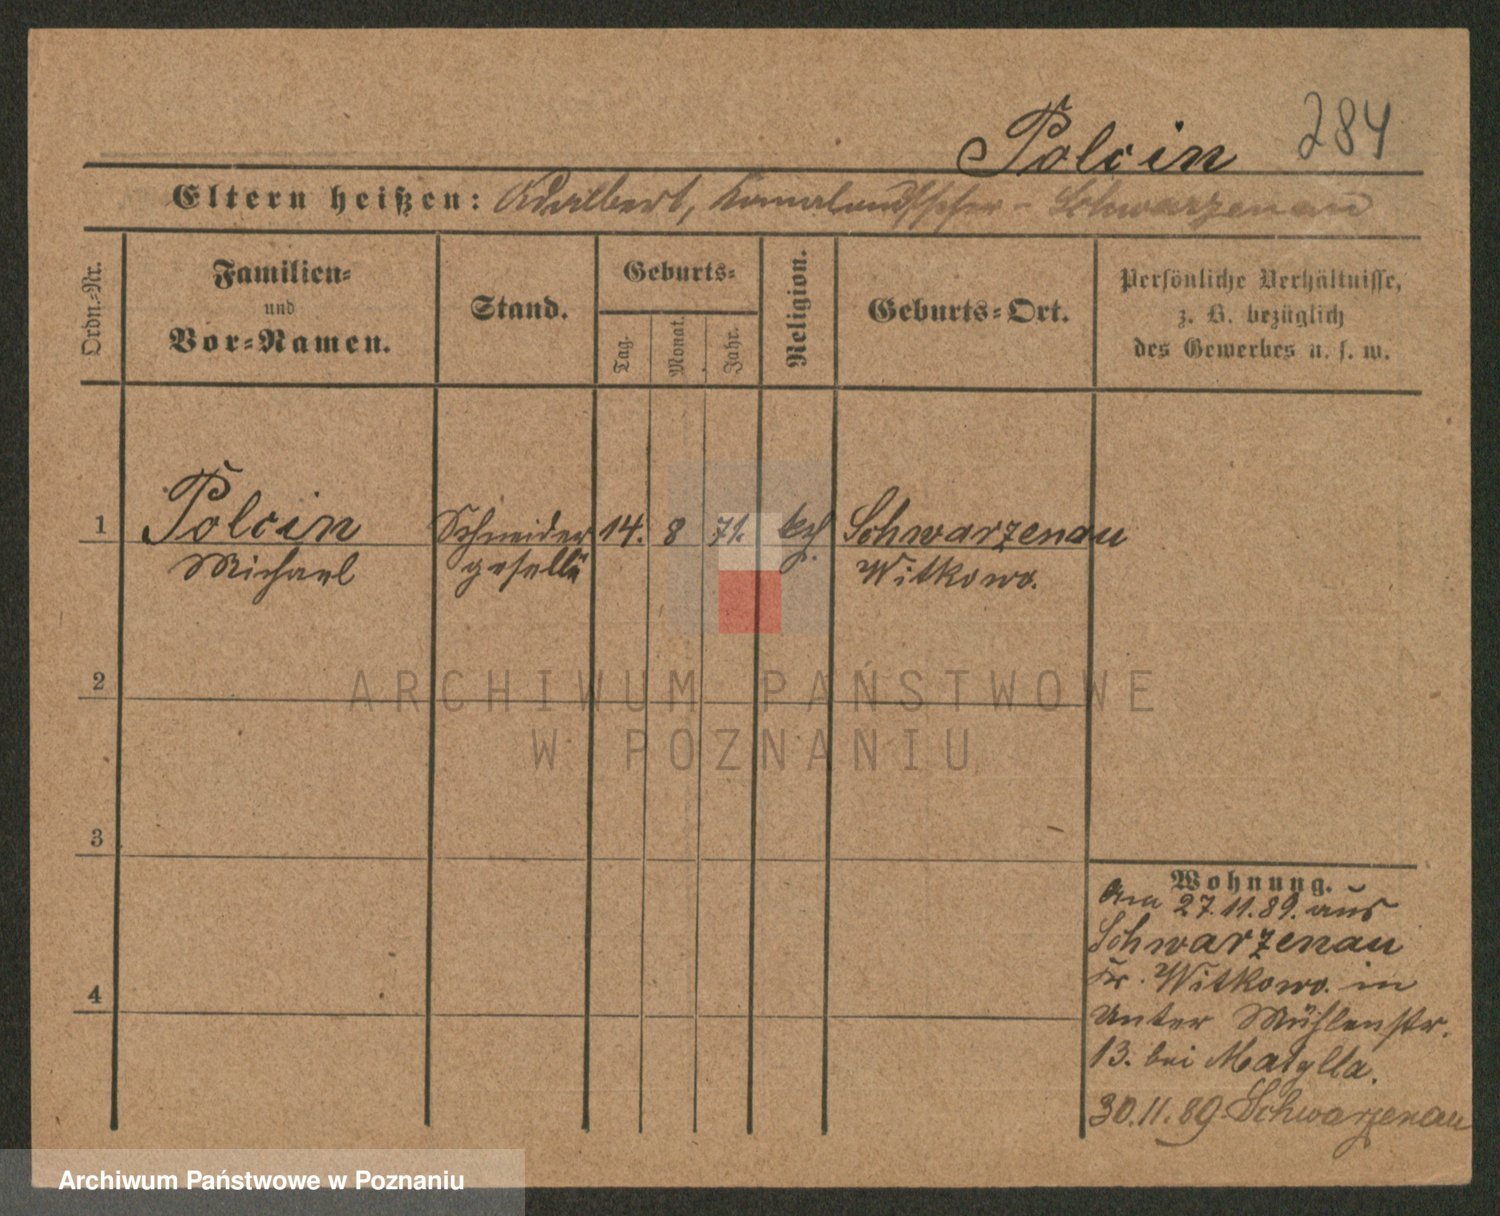 Polcin 284
Eltern heißen: Adalbert, Schwarzenau
Ordn.-Nr.
Familien-
und
Vor-Namen.
Stand.
Geburts-
Tag.
Monat.
Jahr.
Religion.
Geburts-Ort.
Persönliche Verhältnisse,
z. B. bezüglich
des Gewerbes u. s. w.
1 Polcin Schneider 14. 8 71. kath. Schwarzenau
Michael geselle Witkowo.
2
3
4
Wohnung.
Am 27.11.89. aus
Schwarzenau
Kr. Witkowo. in
Unter Mühlenstr.
13. bei Matylla.
30.11.89 Schwarzenau
ARCHIWUM PAŃSTWOWE
W POZNANIU
Archiwum Państwowe w Poznaniu